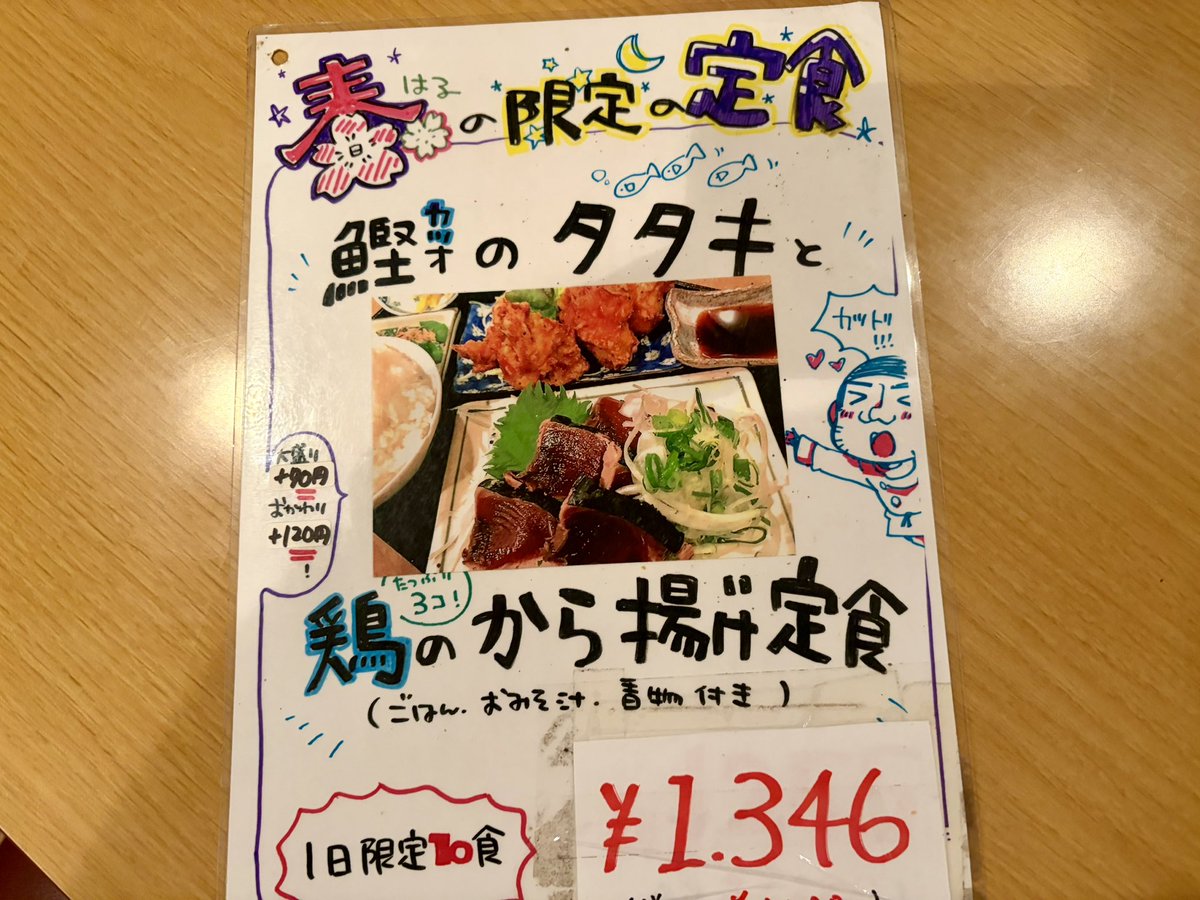 春はるの限定の定食
鰹カツオのタタキと
ガッツ!!!
大盛り
+70円
おかわり
+120円
!
たっぷり
3コ!
鶏のから揚げ定食
(ごはん.おみそ汁.香物付き)
1日限定10食
¥1.346